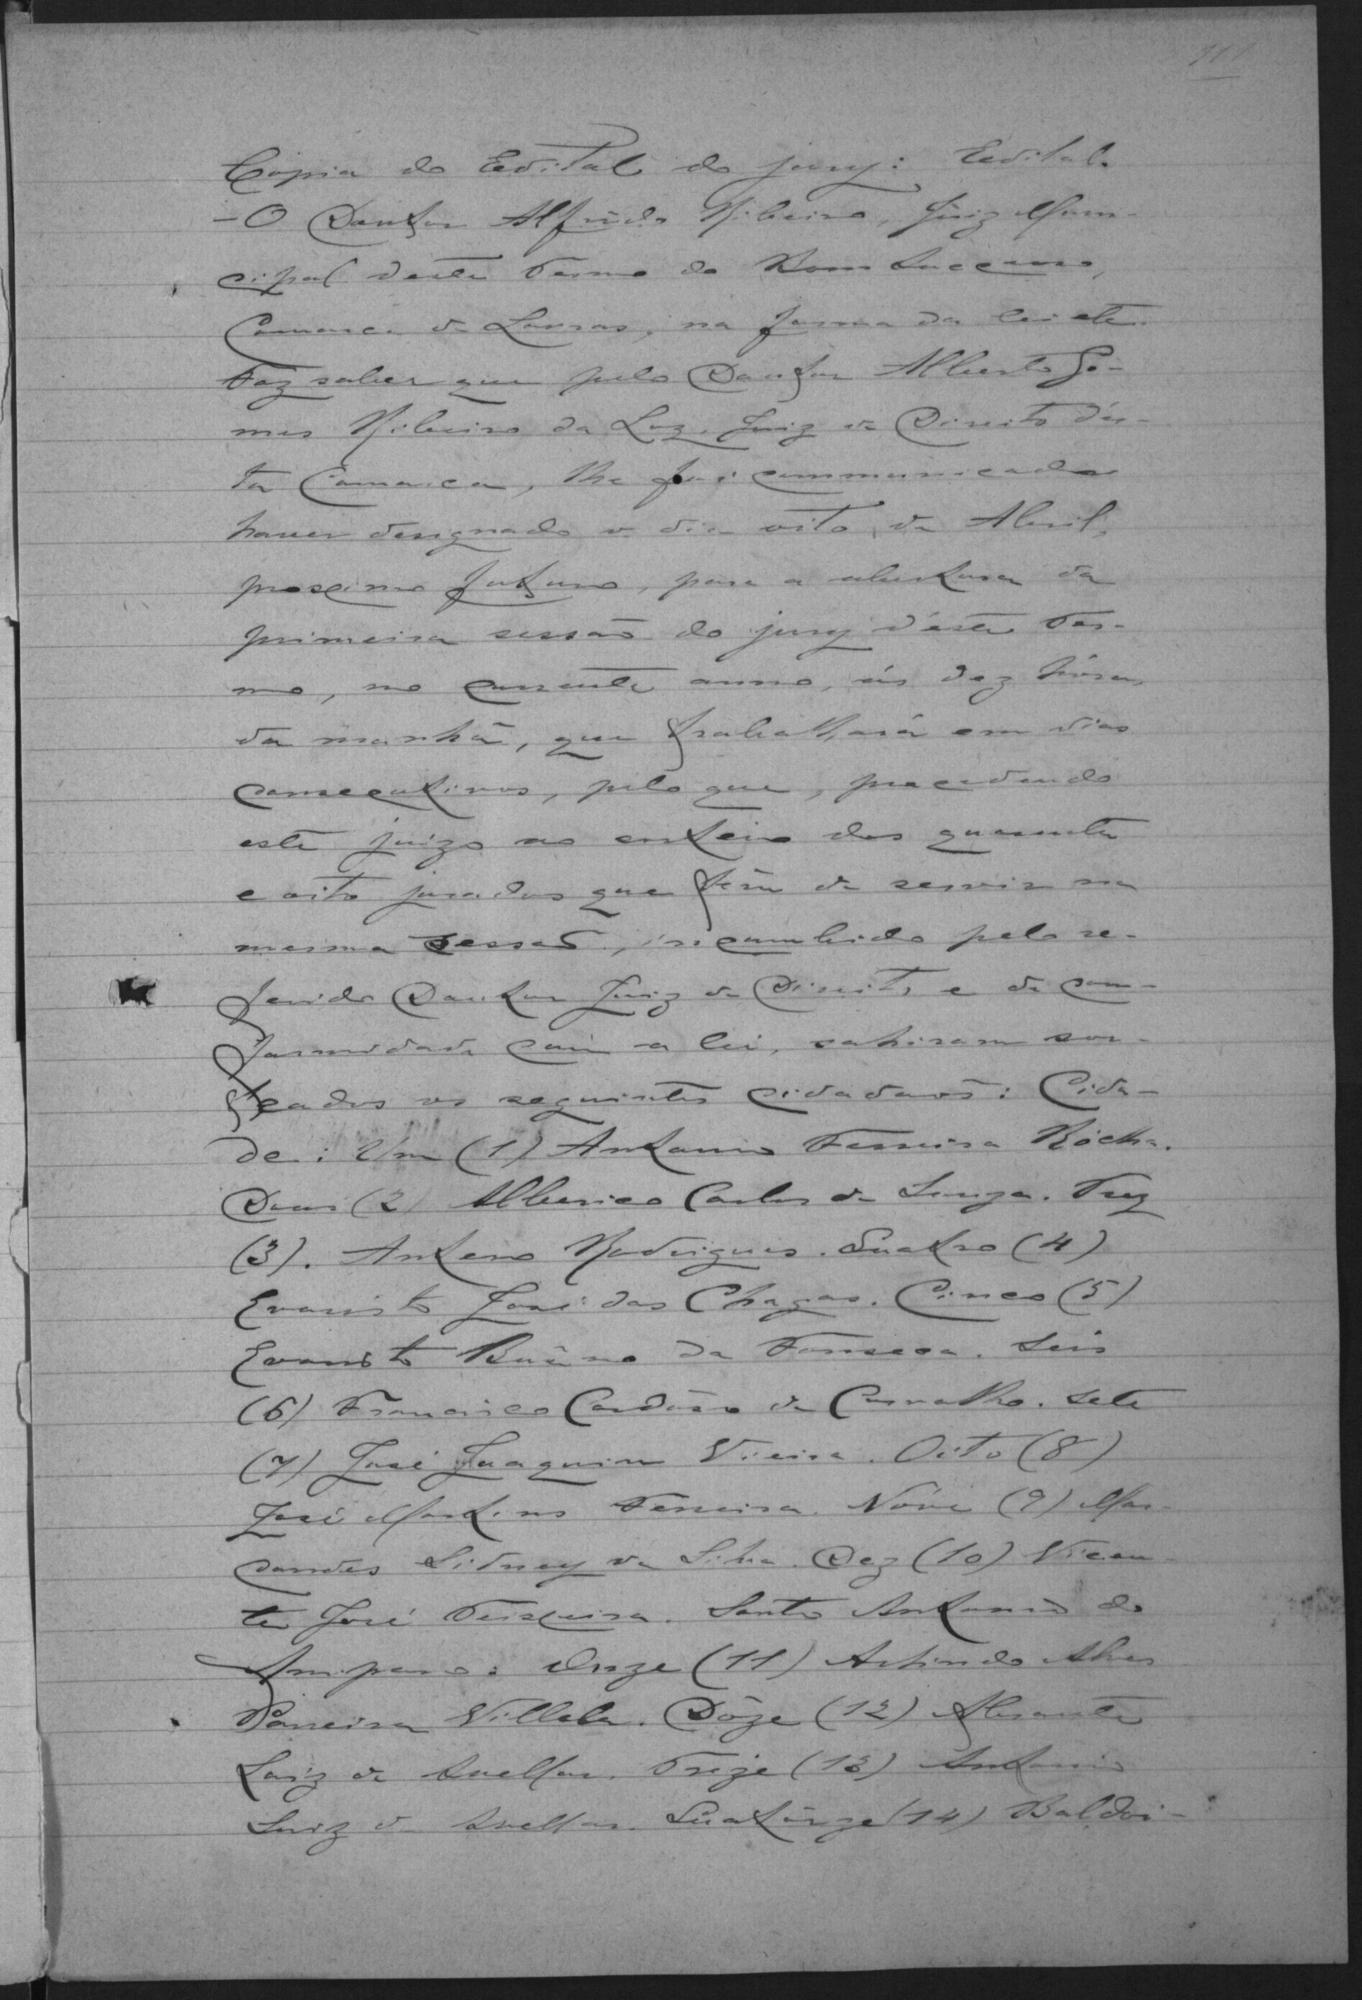 111
Cópia do Edital do jury: Edital.
— O Doutor Alfrêdo Ribeiro, Juiz Muni-
cipal deste Termo de Bom Successo,
Comarca de Lavras, na forma da lei etc.
Faz saber que pelo Doutor Alberto Go-
mes Ribeiro da Luz, Juiz de Direito d'es-
ta Comarca, lhe foi communicado
haver designado o dia oito de Abril,
proximo futuro, para a abertura da
primeira sessão do jury d'este Ter-
mo, no corrente anno, ás dez hóras
da manhã, que trabalhará em dias
consecutivos, pelo que, procedendo
este juizo ao sorteio dos quarenta
e oito jurados que têm de servir na
mesma sessão, incumbido pelo re-
ferido Doutor Juiz de Direito e de con-
formidade com a lei, sahiram sor-
teados os seguintes cidadãos: Cida-
de: Um (1) Antonio Ferreira Rócha.
Dous (2) Alberico Carlos de Souza. Trez
(3). Antero Rodrigues. Quatro (4)
Evaristo José das Chagas. Cinco (5)
Evaristo Buêno da Fonseca. Seis
(6) Francisco Cardôso de Carvalho. Sete
(7) José Joaquim Vieira. Oito (8)
José Martins Ferreira. Nóve (9) Mar-
condes Sidney da Silva. Dez (10) Vicen-
te José Teixeira. Santo Antonio do
Amparo: Onze (11) Arlindo Alves
Parreira Villela. Dôze (12)
Luiz de Avellar. Treze (13) Antonio
Luiz de Avellar. Quatôrze (14) Baldoi-